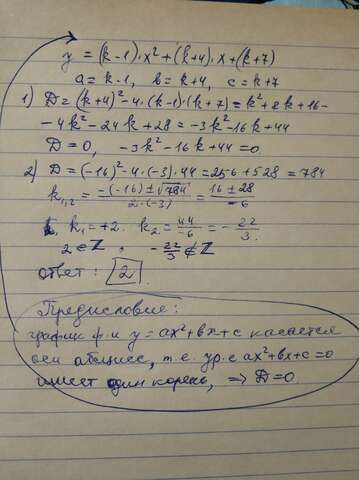 y = (k-1)·x²+(k+4)·x+(k+7)
a = k-1, b = k+4, c = k+7
1) D = (k+4)²-4·(k-1)·(k+7) = k²+8k+16-
-4k²-24k+28 = -3k²-16k+44
D = 0, -3k²-16k+44 = 0.
2) D = (-16)²-4·(-3)·44 = 256+528 = 784
k₁,₂ = (-(-16)±√784)/(2·(-3)) = (16±28)/(-6)
k₁ = +2. k₂ = 44/-6 = -22/3.
2 ∈ Z, -22/3 ∉ Z
ответ: 2
Предисловие:
график ф-и y = ax²+bx+c касается
оси абсцисс, т.е. ур-е ax²+bx+c=0
имеет один корень, ⇒ D=0.